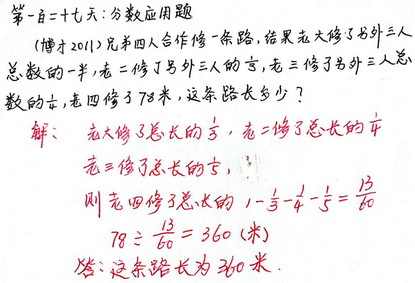 第一百二十七天:分数应用题
(博才2011)兄弟四人合作修一条路,结果老大修了另外三人
总数的一半,老二修了另外三人的⅓,老三修了另外三人总
数的¼,老四修了78米,这条路长多少?
解: 老大修了总长的⅓,老二修了总长的¼
老三修了总长的⅕,
则老四修了总长的 1-⅓-¼-⅕=13/60
78÷13/60=360(米)
答:这条路长为360米.